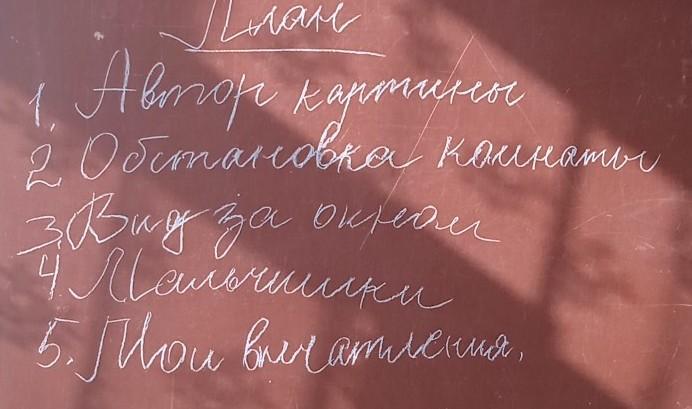 План
1. Автор картины
2. Обстановка комнаты
3. Вид за окном
4. Мальчишки
5. Мои впечатления.